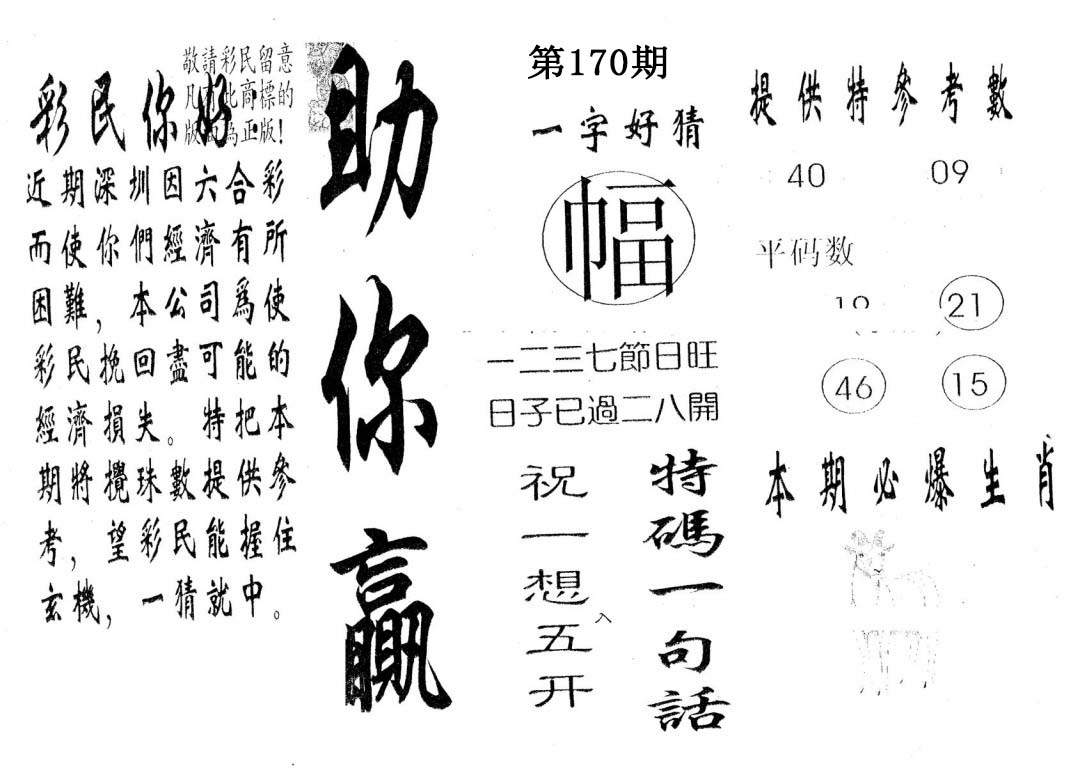 第170期
敬請彩民留意
凡 此商標的
版 為正版!
彩民你好:
近期深圳因六合彩
而使你們經濟有所
困難,本公司爲使
彩民挽回盡可能的
經濟損失。特把本
期將攪珠數提供參
考,望彩民能握住
玄機,一猜就中。
助你贏
一字好猜
幅
一二三七節日旺
日子已過二八開
特碼一句話
祝一想五开
入
提供特參考數
40 09
平码数
19 21
46 15
本期必爆生肖